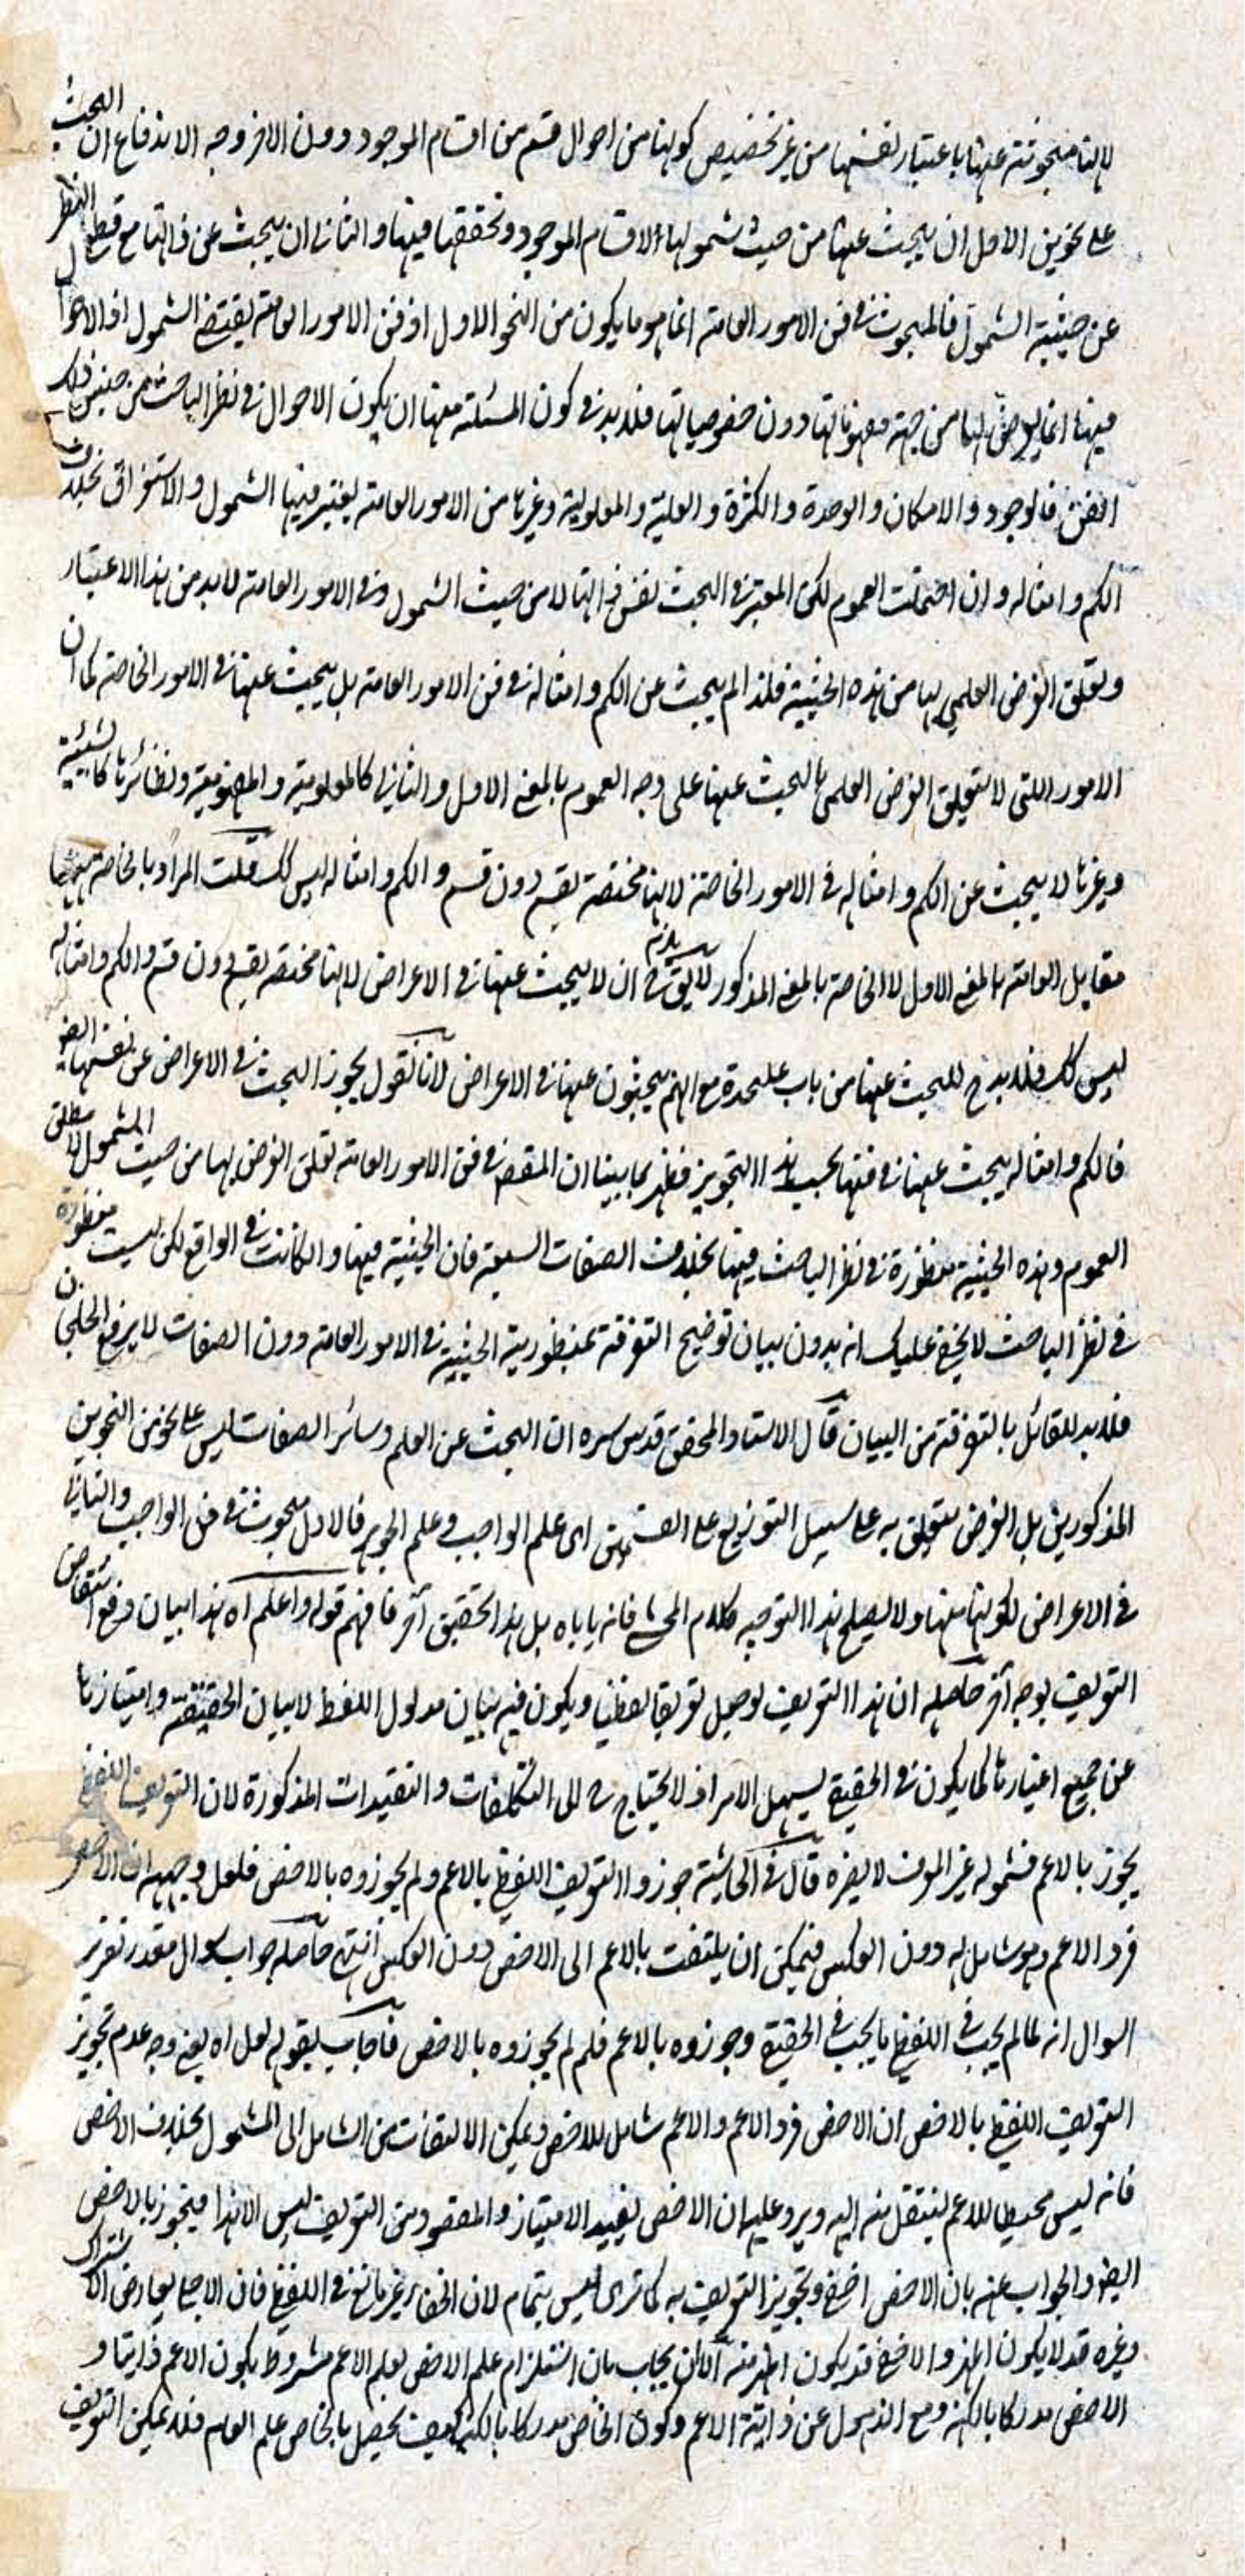 لانها مبحوثة عنها باعتبار نفسها من غير تخصيص كونها من احوال قسم من اقسام الموجود دون الاخر وجه الاندفاع ان البحث
على نحوين الاول ان يبحث عنها من حيث شمولها الاقسام الموجود وتحققها فيها والثاني ان يبحث عن ذاتها مع قطع النظر
عن حيثية الشمول فالمبحوث في فن الامور العامة انما هو ما يكون من النحو الاول اذ فن الامور العامة يقتضي الشمول اذ الاحوال
فيها انما يعرض لها من جهة مفهوماتها دون خصوصياتها فلا بد في كون المسئلة منها ان يكون الاحوال في نظر الباحث من حيث ذلك
الفن فالوجود والامكان والوحدة والكثرة والعلية والمعلولية وغيرها من الامور العامة يعتبر فيها الشمول والاستغراق بخلاف
الكم وامثاله وان احتملت العموم لكن المعتبر في البحث نفس ذاتها لا من حيث الشمول وفي الامور العامة لا بد من هذا الاعتبار
وتعلق الغرض العلمي بها من هذه الحيثية فلذا لم يبحث عن الكم وامثاله في فن الامور العامة بل يبحث عنها في الامور الخاصة كما ان
الامور اللتى لا يتعلق الغرض العلمى بالبحث عنها على وجه العموم بالمعنى الاول والثاني كالمعلومية والمفهومية ونظائرها كالشيئية
وغيرها لا يبحث عن الكم وامثاله في الامور الخاصة لانها مختصة بقسم دون قسم والكم وامثاله ليس كك قلت المراد بالخاصة ههنا
مقابل العامة بالمعنى الاول لا الخاصة بالمعنى المذكور لا يق يلزم ح ان لا يبحث عنها في الاعراض لانها مختصة بقسم دون قسم والكم وامثاله
ليس كك فلا بد ح للبحث عنها من باب عليحدة مع انهم يبحثون عنها في الاعراض لانا نقول يجوز البحث في الاعراض عن نفسها ايضا
فالكم وامثاله يبحث عنها في فنها بحسب هذا التجويز فظهر مما بينا ان المقصود في فن الامور العامة تعلق الغرض بها من حيث الشمول المطلق
العموم وهذه الحيثية منظورة في نظر الباحث فيها بخلاف الصفات السبعة فان الحيثية فيها وان كانت في الواقع لكن ليست منظورة
في نظر الباحث لا يخفى عليك انه بدون بيان توضيح التفرقة بمنظورية الحيثية في الامور العامة دون الصفات لا يرفع الخلجان
فلا بد للقائل بالتفرقة من البيان قال الاستاد المحقق قدس سره ان البحث عن العلم وسائر الصفات ليس على نحو من النحوين
المذكورين بل الغرض يتعلق به على سبيل التوزيع على القسمين اى علم الواجب وعلم الجوهر فالاول مبحوث في فن الواجب والثاني
في الاعراض لكونها منها ولا يصلح هذا التوجيه كلام المحشى فانه ياباه بل هذا تحقيق آخر فافهم قوله واعلم اه هذا بيان دفع انتقاض
التعريف بوجه آخر حاصله ان هذا التعريف لو جعل تعريفا لفظيا ويكون فيه بيان مدلول اللفظ لا بيان الحقيقة وامتيازها
عن جميع اغيارها كما يكون في الحقيقي يسهل الامر اذ لا يحتاج ح الى التكلفات والتقييدات المذكورة لان التعريف اللفظي
يجوز بالاعم فشموله غير المعرف لا يضره قال في الحاشية جوزوا التعريف اللفظي بالاعم ولم يجوزوه بالاخص فلعل وجهه ان الاخص
فرد الاعم وهو شامل له دون العكس فيمكن ان يلتفت بالاعم الى الاخص دون العكس انتهى حاصله جواب سوال مقدر تقرير
السوال انه لما لم يجب في اللفظي ما يجب في الحقيقي وجوزوه بالاعم فلم لم يجوزوه بالاخص فاجاب بقوله لعل اه يعني وجه عدم تجويز
التعريف اللفظي بالاخص ان الاخص فرد الاعم والاعم شامل للاخص ويمكن الالتفات من الشامل الى المشمول بخلاف الاخص
فانه ليس محيطا للاعم لينتقل منه اليه ويرد عليه ان الاخص يفيد الامتياز والمقصود من التعريف ليس الا هذا فيجوز بالاخص
ايضا والجواب عنه بان الاخص اخفى وتجويز التعريف به كما ترى ليس بتمام لان الخفاء غير مانع في اللفظي فان الاجلى يعارض الاشتراك
وغيره قد لا يكون اظهر والاخفى قد يكون اظهر منه الا ان يجاب بان استلزام علم الاخص لعلم الاعم مشروط بكون الاعم ذاتيا و
الاخص مدركا بالكنه ومع الذهول عن ذاتية الاعم وكون الخاص مدركا بالكنه كيف يحصل بالخاص علم العام فلا يمكن التعريف